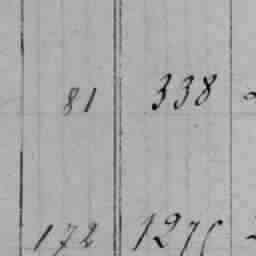 81 338
172 1275